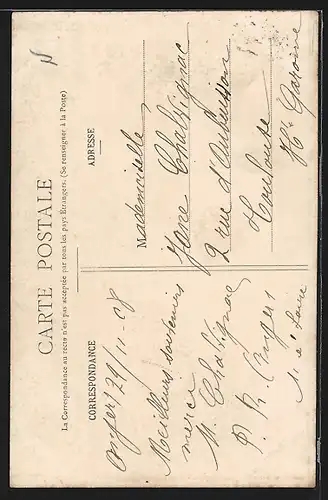 CARTE POSTALE
La Correspondance au recto n'est pas acceptée par tous les pays Étrangers. (Se renseigner à la Poste)
CORRESPONDANCE
Angers 29/11-08
Meilleurs souvenirs
merci
M. Chatignac
P. R. Angers
M & Loire
ADRESSE
Mademoiselle
Chatignac
2 rue d'Aubuisson
Toulouse
Hte Garonne